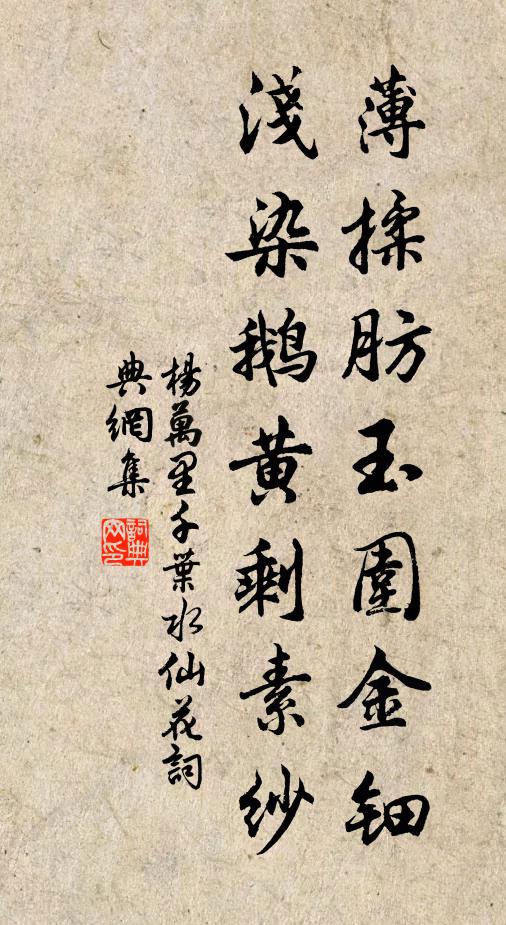 薄揉肪玉圍金鈿
淺染鵝黃剩素紗
楊萬里千葉水仙花詞
典網集
詞典網印